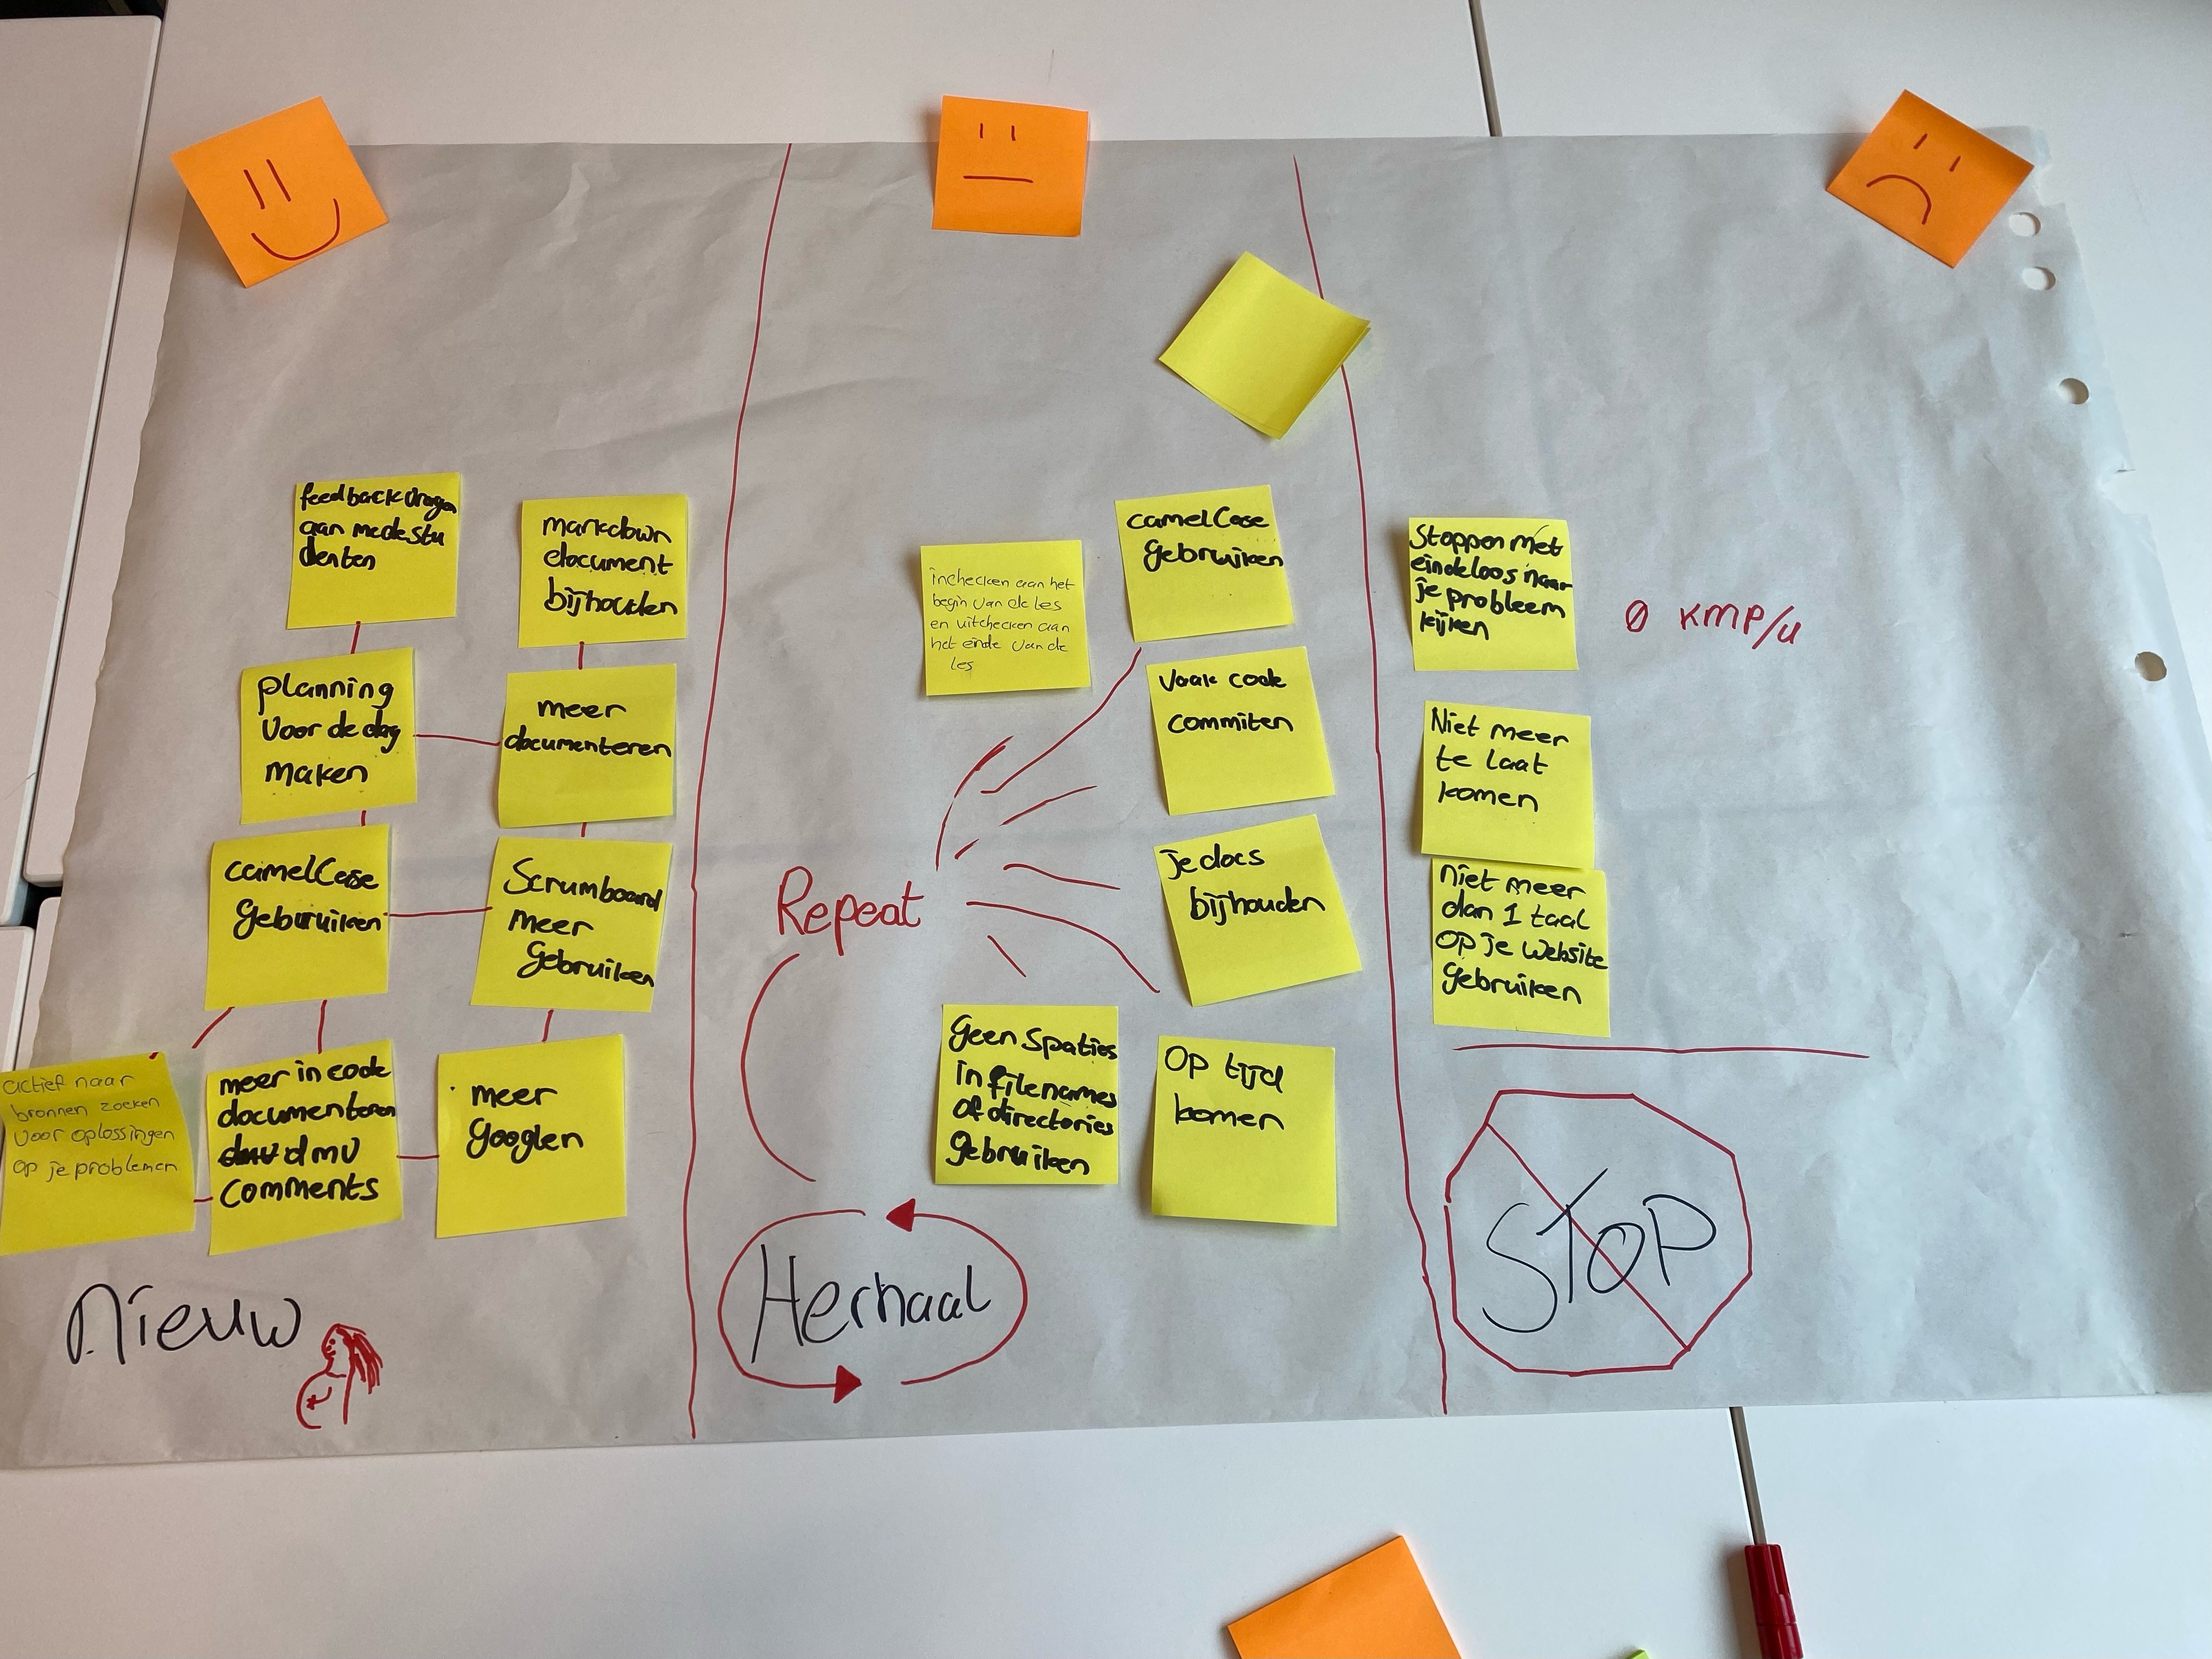 feedback vragen
aan medestu
denten
markdown
document
bijhouden
planning
voor de dag
maken
meer
documenteren
camelCase
geburuiken
Scrumboard
meer
Gebruiken
actief naar
bronnen zoeken
voor oplossingen
op je problemen
meer in code
documenteren
dmv dmv
comments
meer
Googlen
Nieuw
inchecken aan het
begin van de les
en uitchecken aan
het einde van de
les
camelCase
Gebruiken
Vaak code
commiten
je docs
bijhouden
Repeat
Geen spaties
in filenames
of directories
gebruiken
Op tijd
komen
Herhaal
Stoppen met
eindeloos naar
je probleem
kijken
0 KMP/u
Niet meer
te laat
komen
Niet meer
dan 1 taal
op je website
gebruiken
STOP